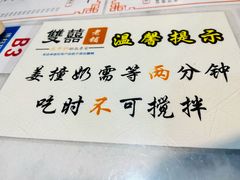 雙囍
温馨提示
姜撞奶需等两分钟
吃时不可搅拌
B3